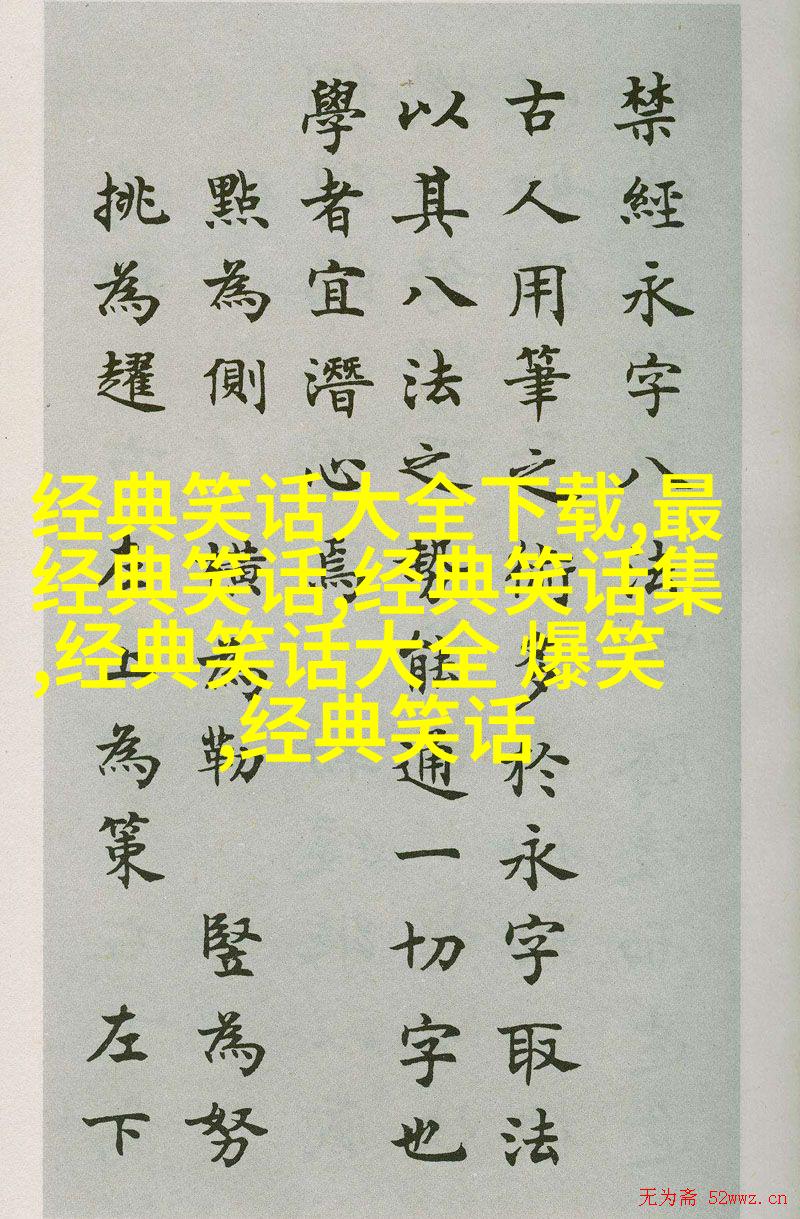 禁經永字八法
古人用筆之術多於永字取法
以其八法之勢能通一切字也
學者宜潛心焉
點為側 橫為勒 豎為努
挑為趯 左上為策 左下
经典笑话大全下载,最
经典笑话,经典笑话集
,经典笑话大全 爆笑
,经典笑话
无为斋 52wwz.cn